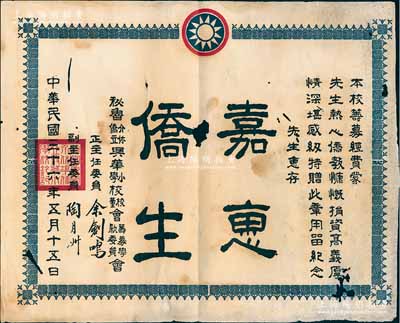 本校籌募經費蒙
先生熱心僑教慷慨捐資高義厚
情深堪感級特贈此章用留紀念
先生惠存
嘉惠
僑生
秘魯
興華學校
正主任委員 余劍鳴
副主任委員 陶月州
中華民國三十六年五月十五日